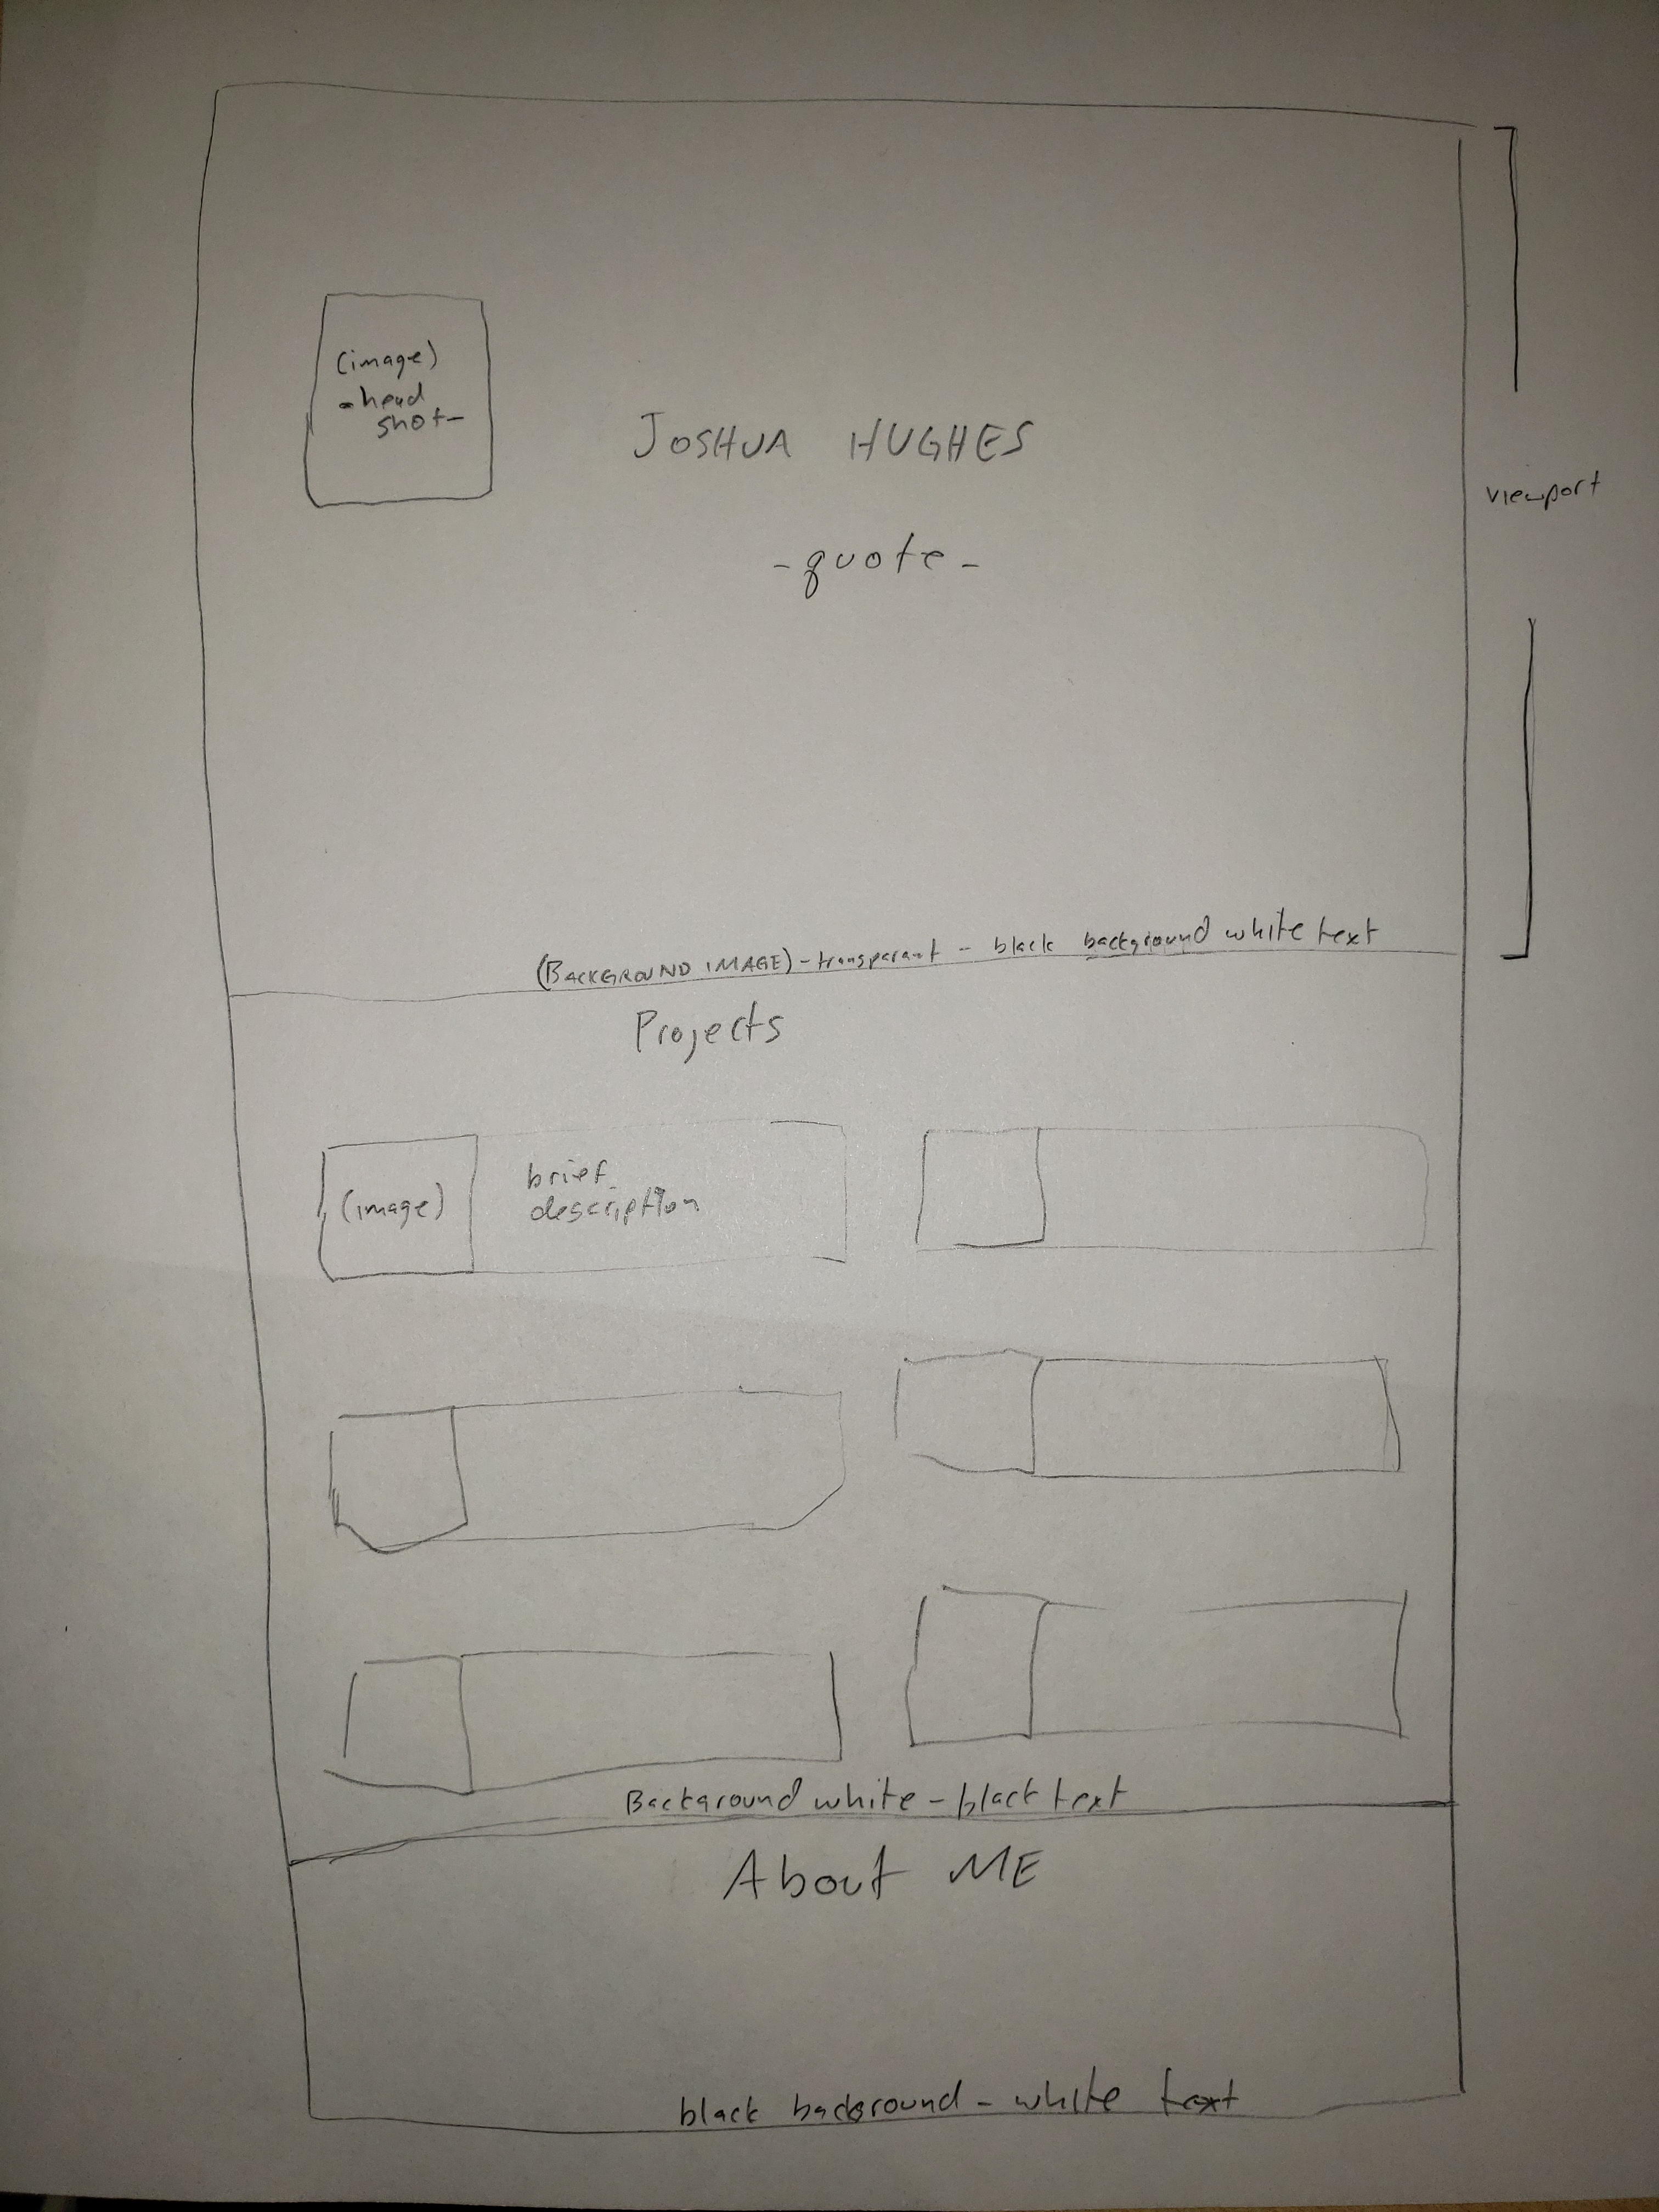 (image)
-head
shot-
JOSHUA HUGHES
viewport
-quote-
(BACKGROUND IMAGE)-transparant - black background white text
Projects
(image)
brief
description
Background white - black text
About ME
black background - white text